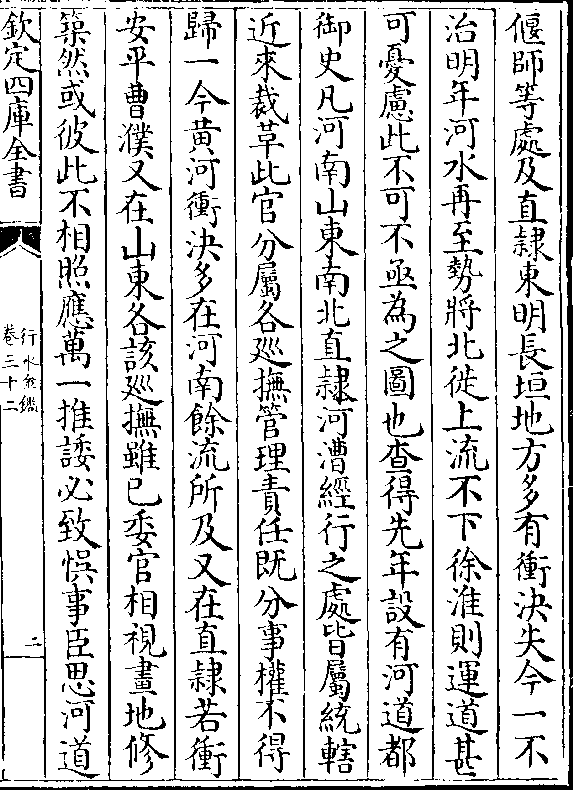 偃師等處及直隸東明長垣地方多有衝決失今一不
治明年河水再至勢將北徙上流不下徐淮則運道甚
可憂慮此不可不亟為之圖也查得先年設有河道都
御史凡河南山東南北直隸河漕經行之處皆屬統轄
近來裁革此官分屬各廵撫管理責任既分事權不得
歸一今黄河衝決多在河南餘流所及又在直隸若衝
安平曹濮又在山東各該廵撫雖已委官相視畫地修
築然或彼此不相照應萬一推諉必致悞事臣思河道
欽定四庫全書
行水金鑑
卷三十二
二